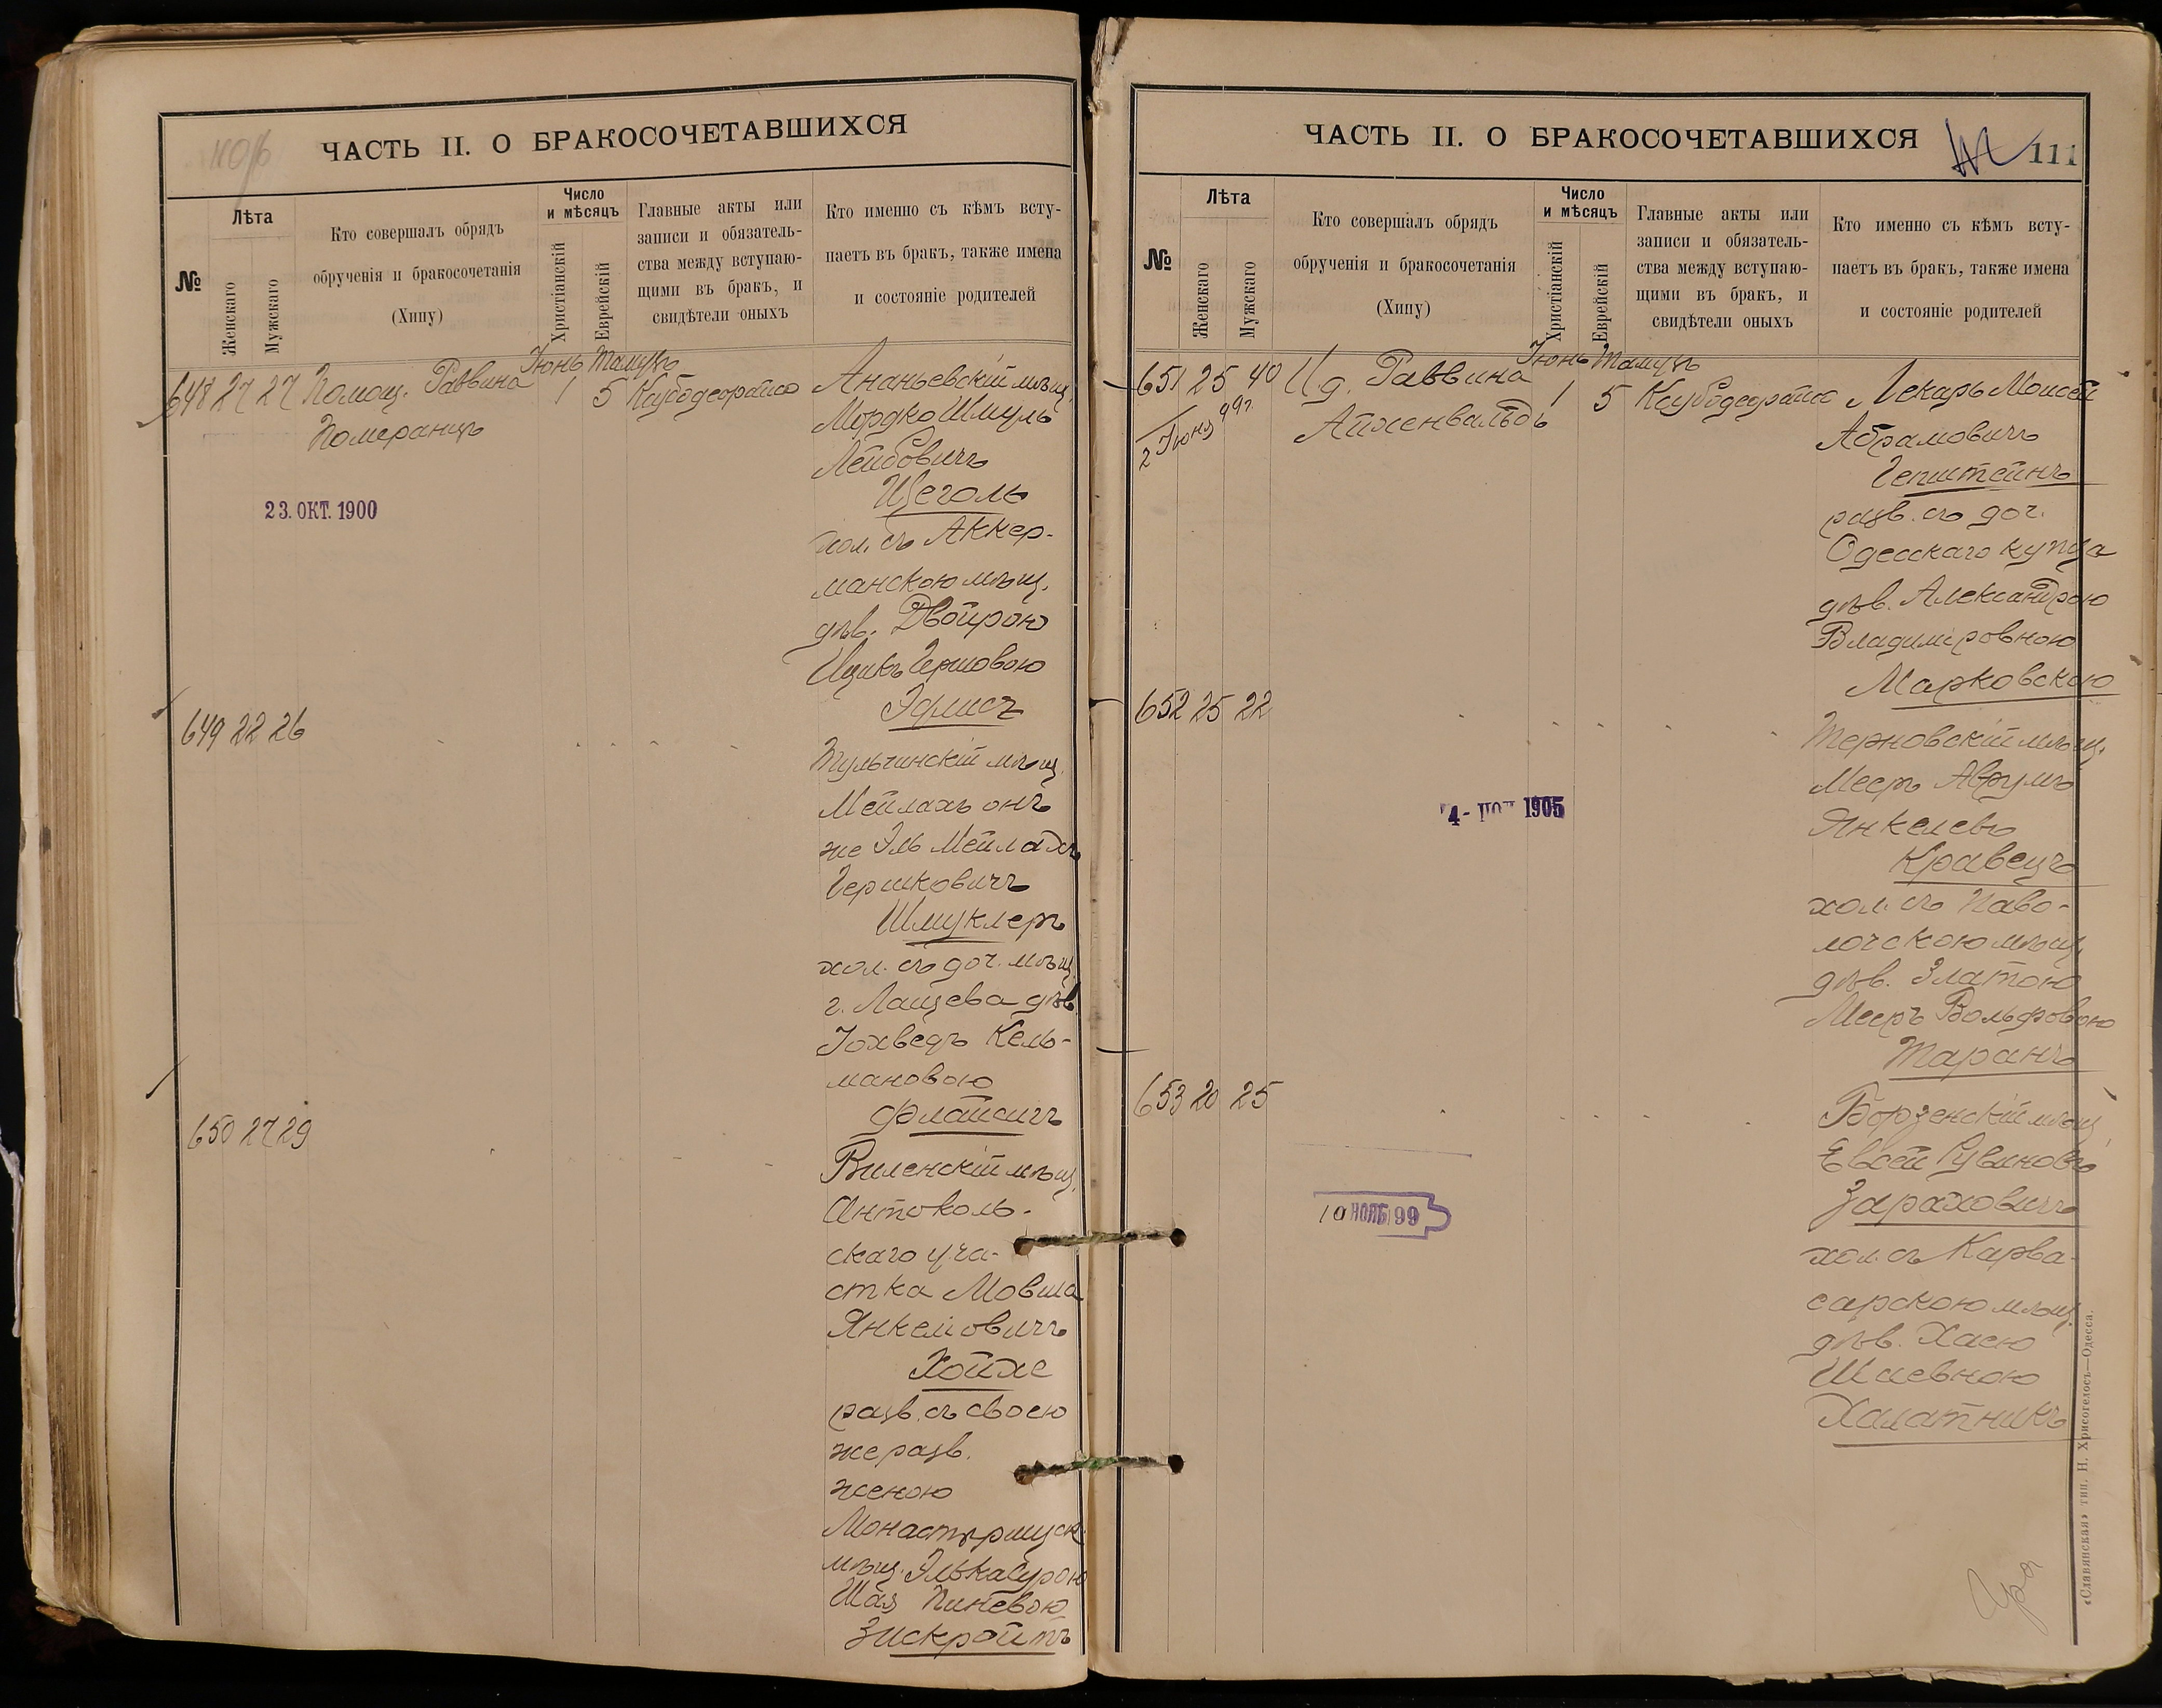 ЧАСТЬ II. О БРАКОСОЧЕТАВШИХСЯ
№
Лѣта
Женскаго
Мужскаго
Кто совершалъ обрядъ
обрученія и бракосочетанія
(Хипу)
Число
и мѣсяцъ
Христіанскій
Еврейскій
Главные акты или
записи и обязатель-
ства между вступаю-
щими въ бракъ, и
свидѣтели оныхъ
Кто именно съ кѣмъ всту-
паетъ въ бракъ, также имена
и состояніе родителей
Іюнь Тамузъ
648 27 27 Помощ. Раввина 1 5
Померанцъ
Ананьевскій мѣщ.
Мордко Шмуль
Лейбовичъ
Щеголь
хол. съ Аккер-
манскою мѣщ.
дѣв. Двойрою
Ицикъ Гершовою
Эфлисъ
23. ОКТ. 1900
649 22 26
Тульчинскій мѣщ.
Мейлахъ онъ
же Эль Мейлахъ
Гершковичъ
Шмуклеръ
хол. съ доч. мѣщ.
г. Лащева дѣв.
Іохведъ Кель-
мановою
650 27 29
Виленскій мѣщ.
Антоколь-
скаго уча-
стка Мовша
Янкелiовичъ
Хойхе
разв. съ своею
же разв.
женою
Монастырищск.
мѣщ. Элька Сурою
Шая Пиневою
Зискройтъ
ЧАСТЬ II. О БРАКОСОЧЕТАВШИХСЯ
111
№
Лѣта
Женскаго
Мужскаго
Кто совершалъ обрядъ
обрученія и бракосочетанія
(Хипу)
Число
и мѣсяцъ
Христіанскій
Еврейскій
Главные акты или
записи и обязатель-
ства между вступаю-
щими въ бракъ, и
свидѣтели оныхъ
Кто именно съ кѣмъ всту-
паетъ въ бракъ, также имена
и состояніе родителей
Іюнь Тамузъ
651 25 40 И д. Раввина 1 5
Айхенвальдъ
2 Іюня 99г.
Лекарь Моисей
Абрамовичъ
Гепштейнъ
разв. съ доч.
Одесскаго купца
дѣв. Александрою
Владиміровною
Марковскою
652 25 22
Терновскій мѣщ.
Мееръ Аврумъ
Янкелевъ
Кравецъ
хол. съ Паво-
лочскою мѣщ.
дѣв. Златою
Мееръ Вольфовою
Таранъ
4- 1905
653 20 25
Борзенскій мѣщ.
Евсей Рувиновъ
Зараховичъ
хол. съ Карва-
сарскою мѣщ.
дѣв. Хаею
Шаевною
Халатникъ
10 НОЯБ 99
«Славянская» тип. Н. Хрисогелосъ—Одесса.